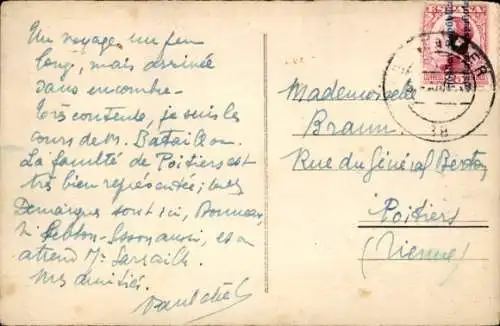 Un voyage un peu
long, mais arrivée
sans encombre.
Très contente, je suis les
cours de M. Bataillon.
La faculté de Poitiers est
très bien représentée; 
Demaigus sont ici, Bonneau,
et on
attend Mr Sarrailh.
Mes amitiés.
Mademoiselle
Braun
Rue du Général Berton
Poitiers
(Vienne)
38